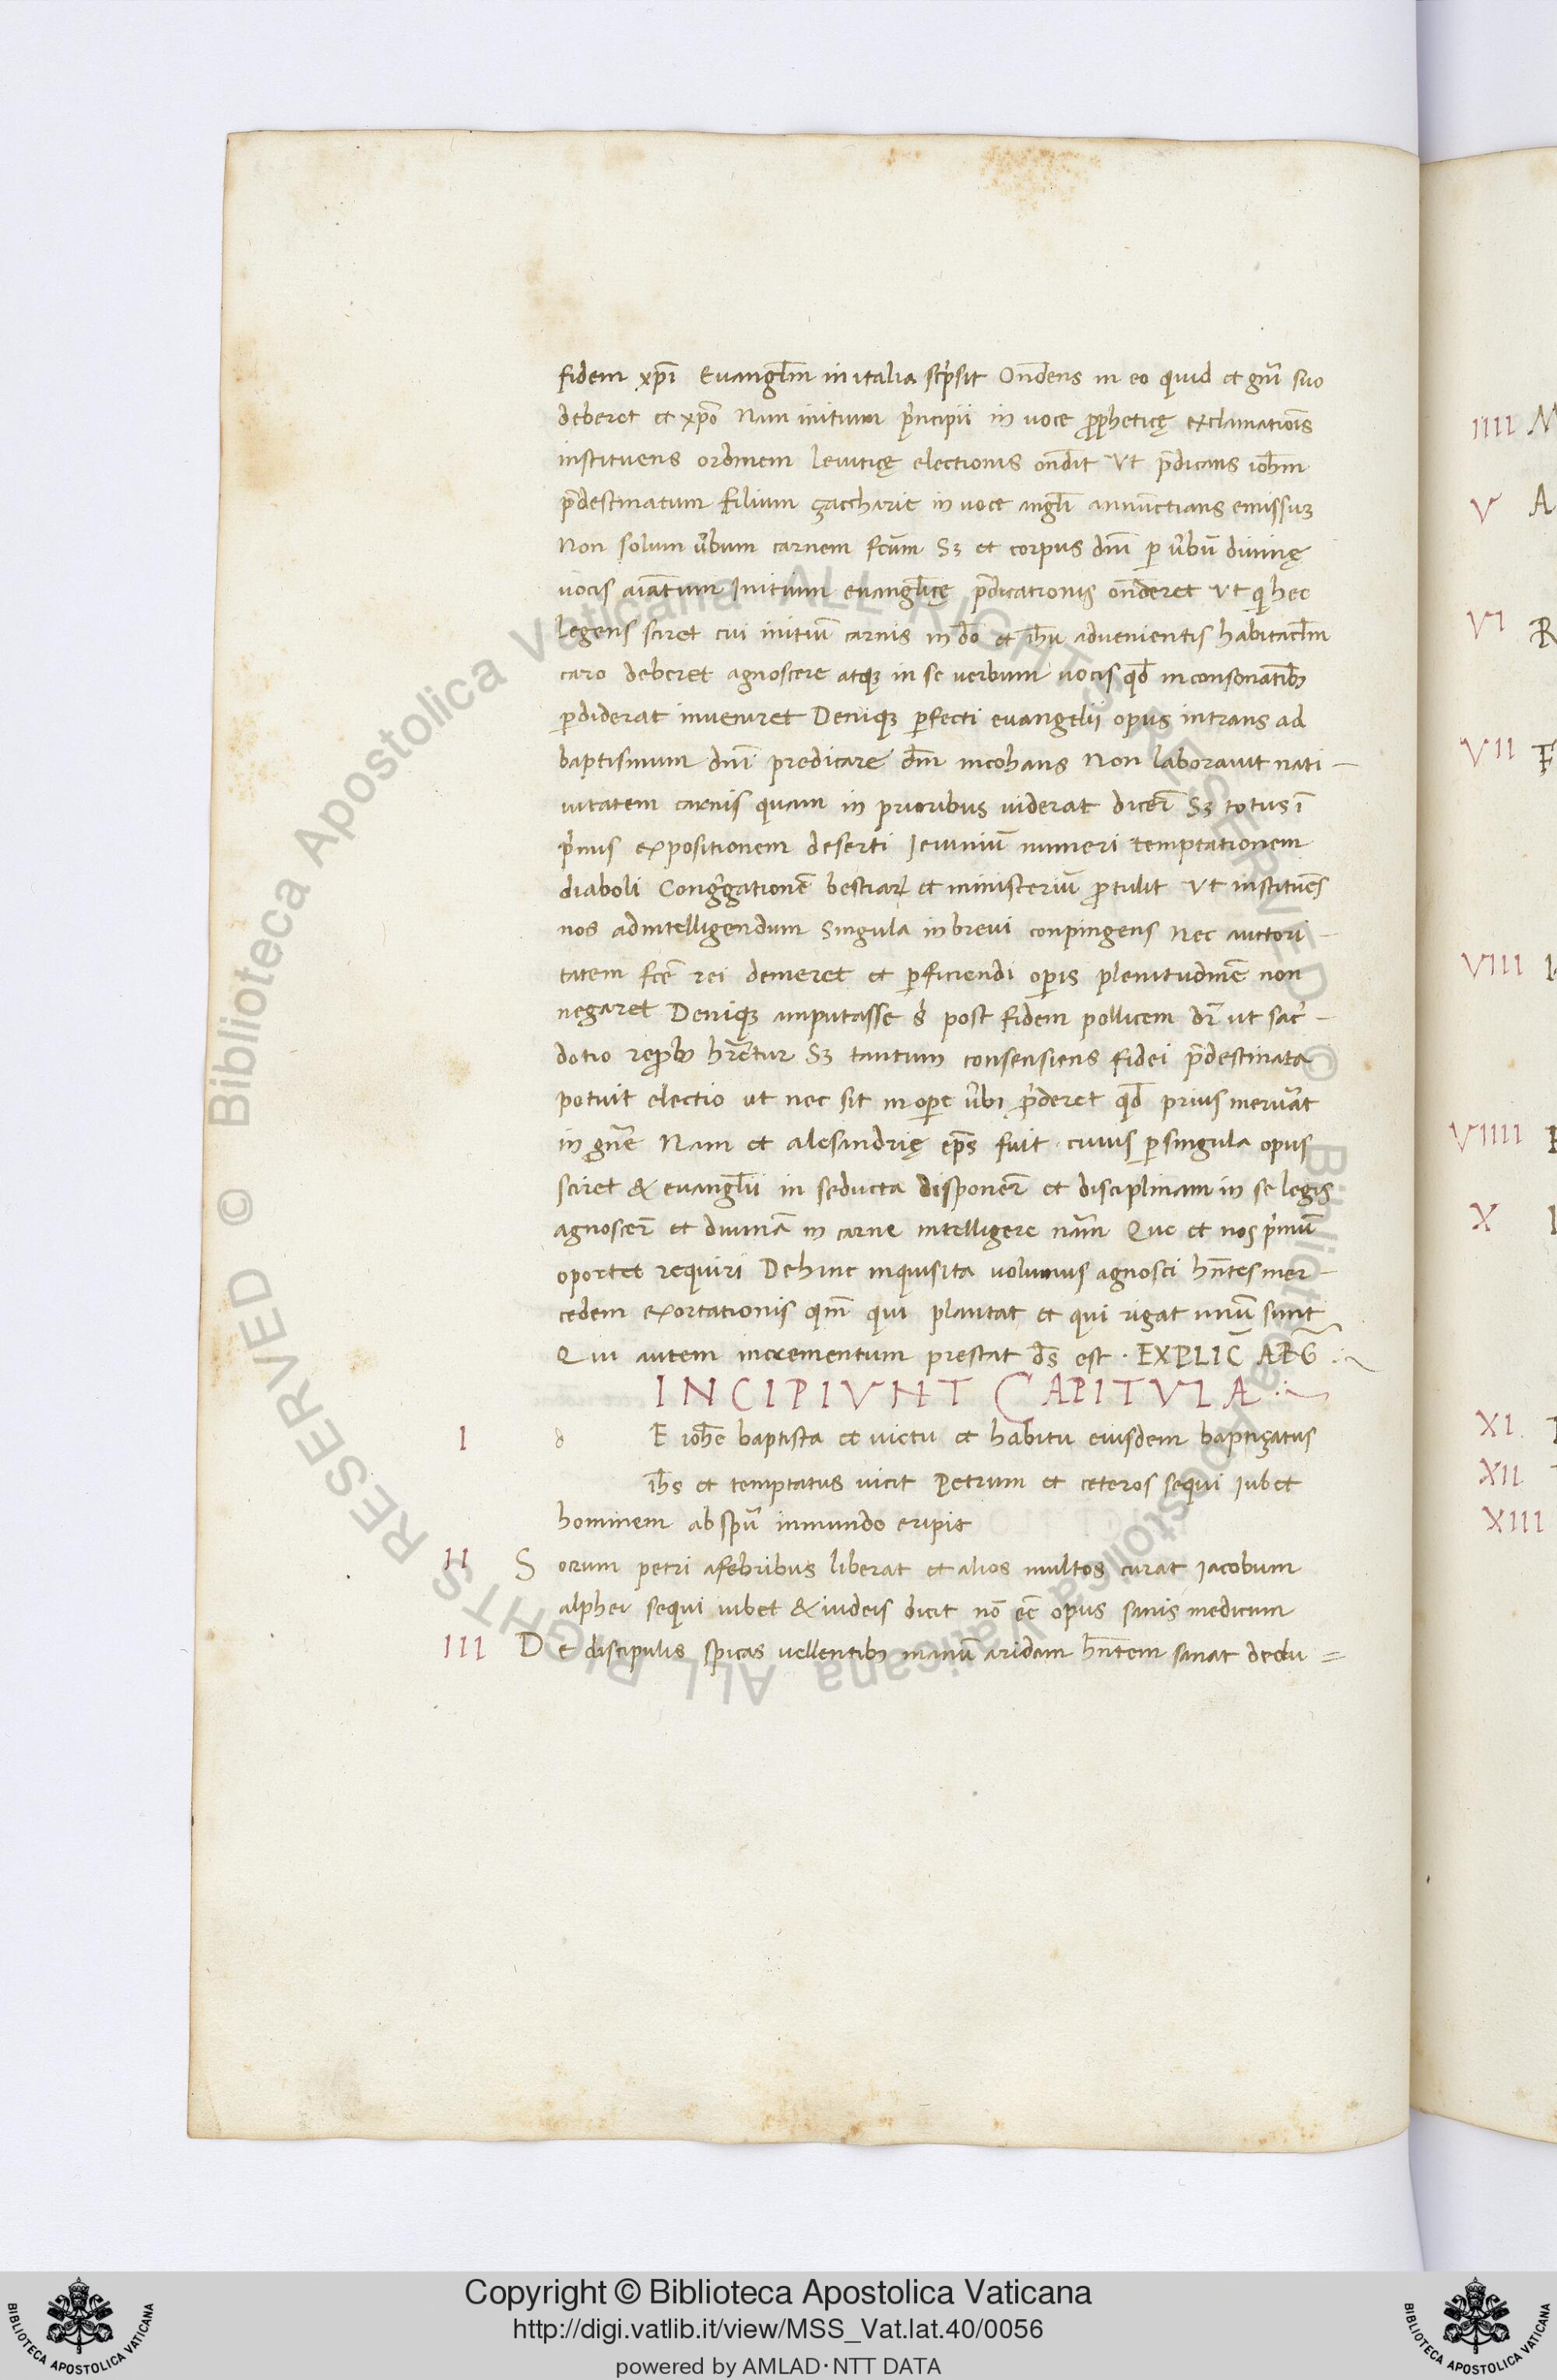 fidem xp̄i Evangl̄m in italia scp̓sit On̄dens in eo quid et gn̄i suo
deberet et xp̄o Nam initium pͥncipii in voce ꝓpheticę exclamatiōis
instituens ordinem leviticę electionis on̄dit Ut p̄dicans ioh̄m
p̄destinatum filium zaccharie in voce angl̄i annūctians emissuꝫ
Non solum v̓bum carnem fc̄um Sꝫ et corpus dn̄i ꝑ v̓bū divinę
vocis aīatum Initium evangl̄icę p̄dicationis on̄deret Ut qͥ hec
legens sciret cui initiū carnis in dō et ih̄u advenientis habitacl̄m
caro deberet agnoscere atqꝫ in se verbum vocis qd̄ in consonātibꝫ
ꝑdiderat inveniret Deniqꝫ ꝑfecti evangelii opus intrans ad
baptismum dn̄i predicare dm̄ incohans Non laboravit nati-
vitatem carnis quam in prioribus viderat dicer̄ Sꝫ totus ī
pͥmis expositionem deserti Ieiuniū numeri temptationem
diaboli Congͬgationē bestiaꝝ et ministeriū ꝓtulit Ut instituēs
nos adintelligendum Singula in brevi conpingens Nec auctori-
tatem fcē rei demeret et ꝑficiendi oꝑis plenitudinē non
negaret Deniqꝫ amputasse s̓ post fidem pollicem dr̄ ut sac̓-
dotio reꝓbꝰ hr̄etur Sꝫ tantum consensiens fidei p̄destinata
potuit electio ut nec sit in oꝑe v̓bi pͥderet qd̄ prius meruāt
in gn̄e Nam et alesandrię ep̄s fuit cuius ꝑ singula opus
sciret & evangl̄ii in se ducta disponer̄ et disciplinam in se legis
agnoscer̄ et divinā in carne intelligere nāʒ Que et nos pͥmū
oportet requiri Dehinc inquisita volumus agnosci hn̄tes mer-
cedem exortationis qm̄ qui plantat et qui rigat unū sunt
Qui autem incrementum prestat ds̄ est · EXPLIC̄ ARG̃
INCIPIVNT CAPITVLA
I d E ioh̄e baptista et victu et habitu eiusdem baptizatus
ih̄s et temptatus vicit Petrum et ceteros sequi iubet
hominem ab spū inmundo eripit
II S ocrum petri afebribus liberat et alios multos curat Iacobum
alphei sequi iubet & iudeis dicit nō eē opus sanis medicum
III D e discipulis spicas vellentibꝫ manū aridam hn̄tem sanat dedu =
IIII
V A
VI R
VII F
VIII
VIIII
X
XI
XII
XIII
© Biblioteca Apostolica Vaticana ALL RIGHTS RESERVED © Biblioteca Apostolica Vaticana ALL RIGHTS RESERVED
Copyright © Biblioteca Apostolica Vaticana
http://digi.vatlib.it/view/MSS_Vat.lat.40/0056
powered by AMLAD·NTT DATA
BIBLIOTECA APOSTOLICA VATICANA
BIBLIOTECA APOSTOLICA VATICANA